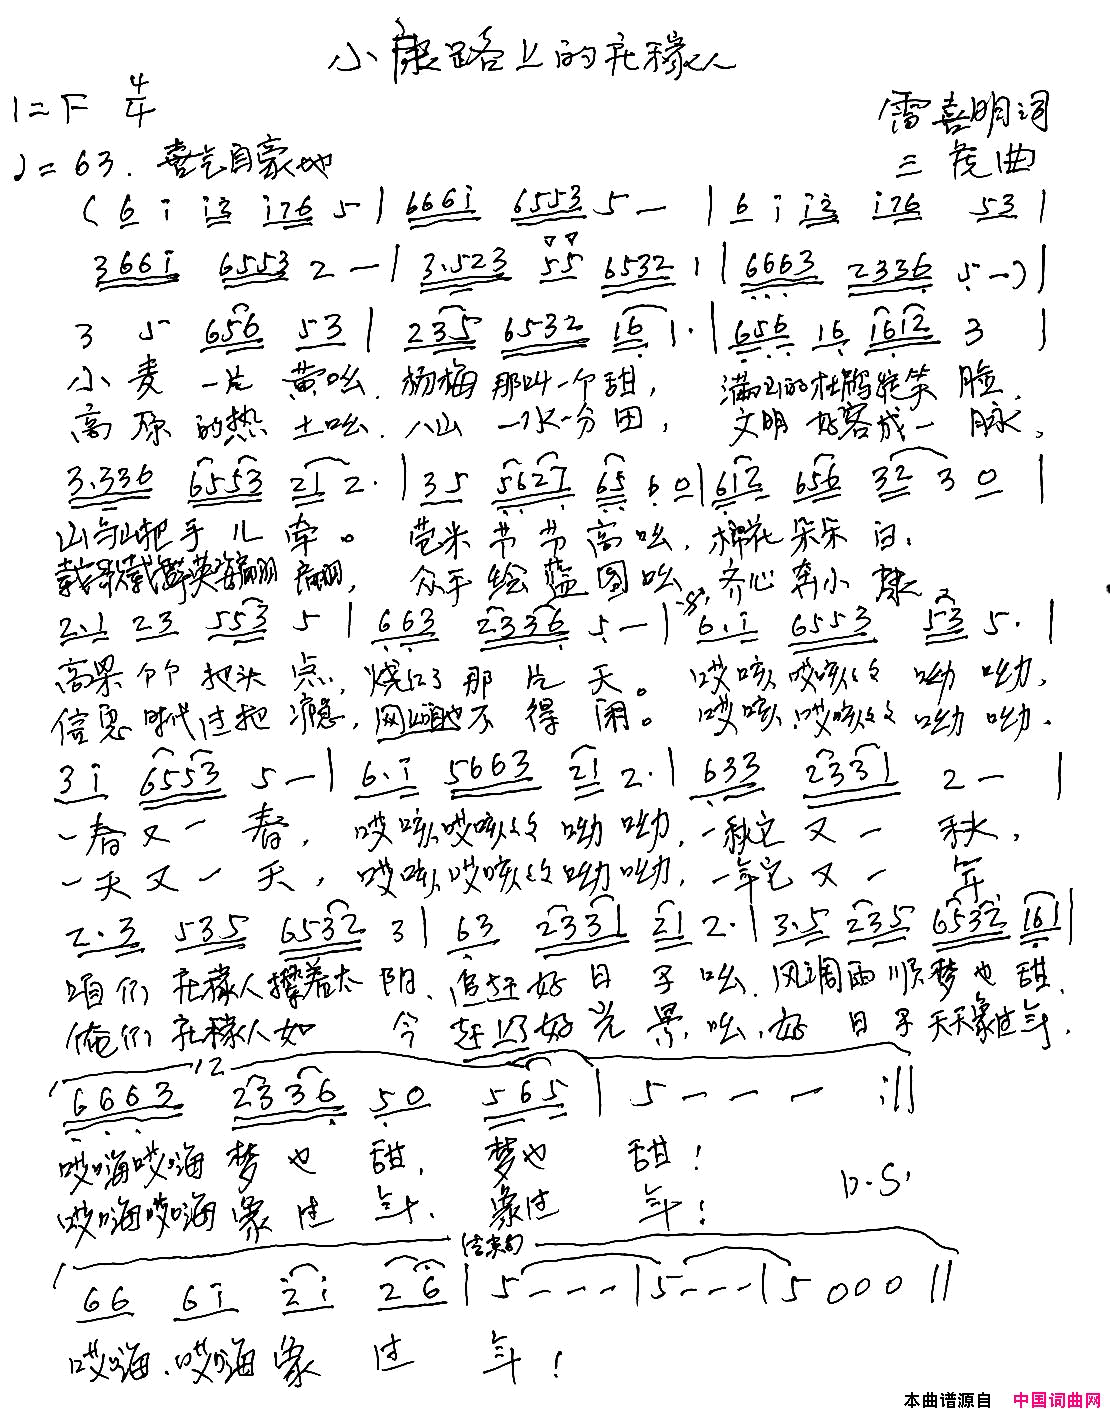 小康路上的庄稼人
1=F 4/4
雷喜明词
♩=63. 喜气自豪地
三虎曲
(6 i i2 i76 5 | 666i 6553 5 — | 6 i i2 i76 53 |
366i 6553 2 — | 3.523 55 6532 1 | 6663 2336 5 —) |
3 5 656 53 | 235 6532 16 1. | 656 16 1612 3 |
小麦一片黄吆.杨梅那叫一个甜, 满山的杜鹃绽笑脸.
高原的热土吆.八山一水一分田, 文明好客成一脉、
3.336 6553 21 2. | 35 5627 65 60 | 612 656 32 3 0 |
山与山把手儿牵。 苞米节节高吆.棉花朵朵白.
载歌载舞英姿翩翩, 众手绘蓝图吆.齐心奔小康
2.1 23 553 5 | 663 2336 5 — | 6.i 6553 53 5. |
高粱个个把头点.烧红了那片天。 哎咳哎咳 呦呦.
信息时代过把瘾.网 不得闲。 哎咳.哎咳 呦呦.
3i 6553 5 — | 6.i 5663 21 2. | 633 2331 2 — |
一春又一春, 哎咳哎咳 呦呦.一秋它又一秋,
一天又一天, 哎咳哎咳 呦呦.一年它又一年
2.3 535 6532 3 | 63 2331 21 2. | 3.5 235 6532 161 |
咱们庄稼人撵着太阳、追赶好日子吆.风调雨顺梦也甜.
俺们庄稼人如今赶上了好光景.吆.好日子天天象过年.
1 2
6663 2336 50 565 | 5 — — — :||
哎嗨哎嗨梦也甜.梦也甜!
哎嗨哎嗨象过年.象过年!
D.S.
结束句
66 6i 2i 26 | 5 — — — | 5 — — — | 5 0 0 0 ||
哎嗨.哎嗨象过年!
本曲谱源自 中国词曲网